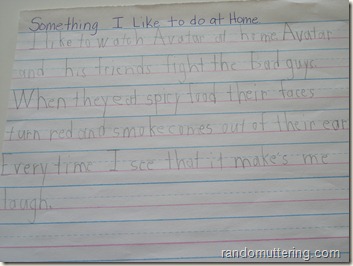 Something I Like to do at Home
I like to watch Avatar at home Avatar
and his friends fight the bad guys.
When they eat spicy food their faces
turn red and smoke comes out of their ear
Every time I see that it make's me
laugh.
randomuttering.com